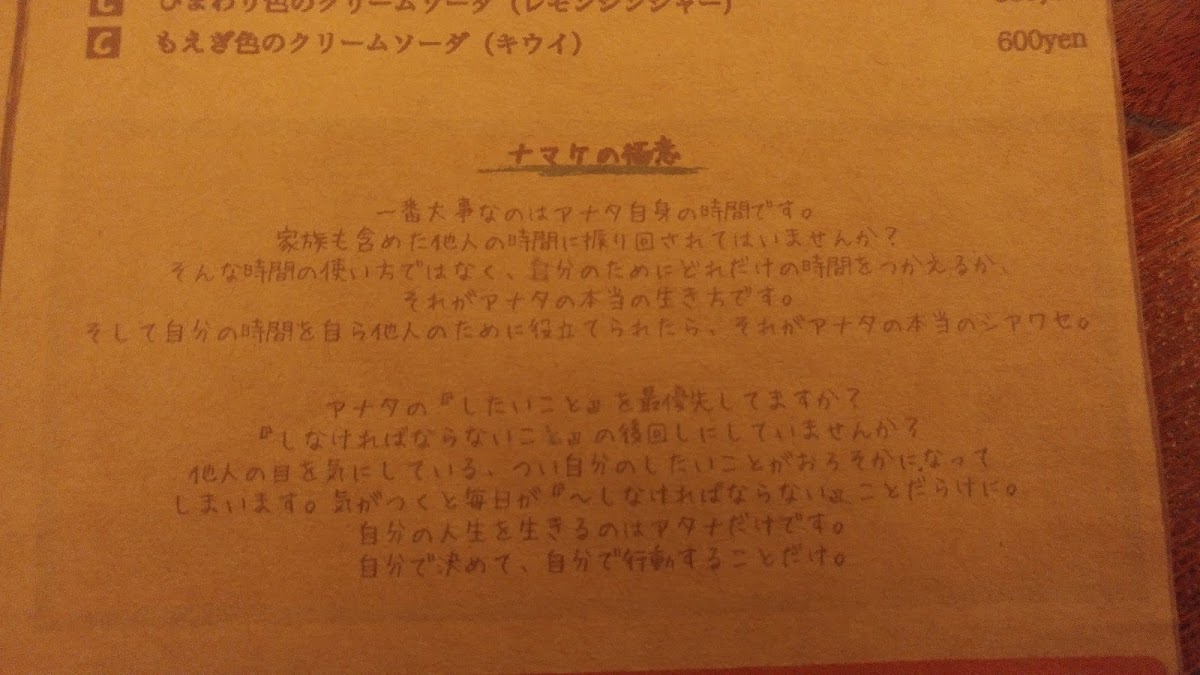 C ひまわり色のクリームソーダ（レモンジンジャー）
C もえぎ色のクリームソーダ（キウイ） 600yen
ナマケの極意
一番大事なのはアナタ自身の時間です。
家族も含めた他人の時間に振り回されてはいませんか？
そんな時間の使い方ではなく、自分のためにどれだけの時間をつかえるか、
それがアナタの本当の生き方です。
そして自分の時間を自ら他人のために役立てられたら、それがアナタの本当のシアワセ。
アナタの『したいこと』を最優先してますか？
『しなければならないこと』の後回しにしていませんか？
他人の目を気にしている、つい自分のしたいことがおろそかになって
しまいます。気がつくと毎日が『～しなければならない』ことだらけに。
自分の人生を生きるのはアタナだけです。
自分で決めて、自分で行動することだけ。